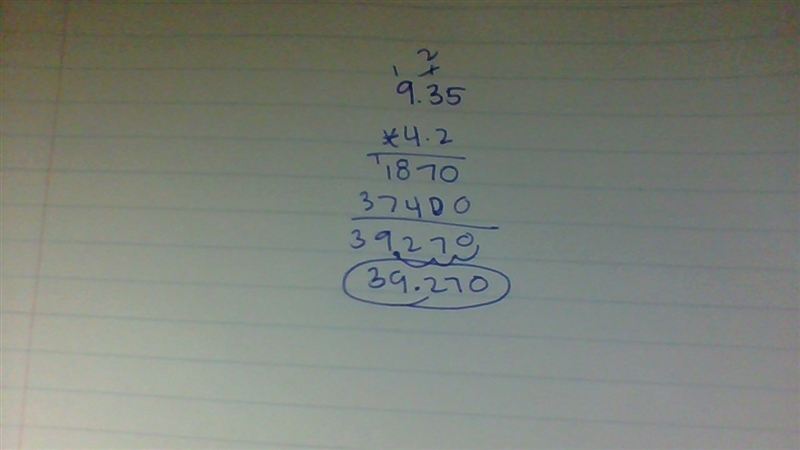 1 2
9.35
×4.2
1
1870
37400
39270
39.270